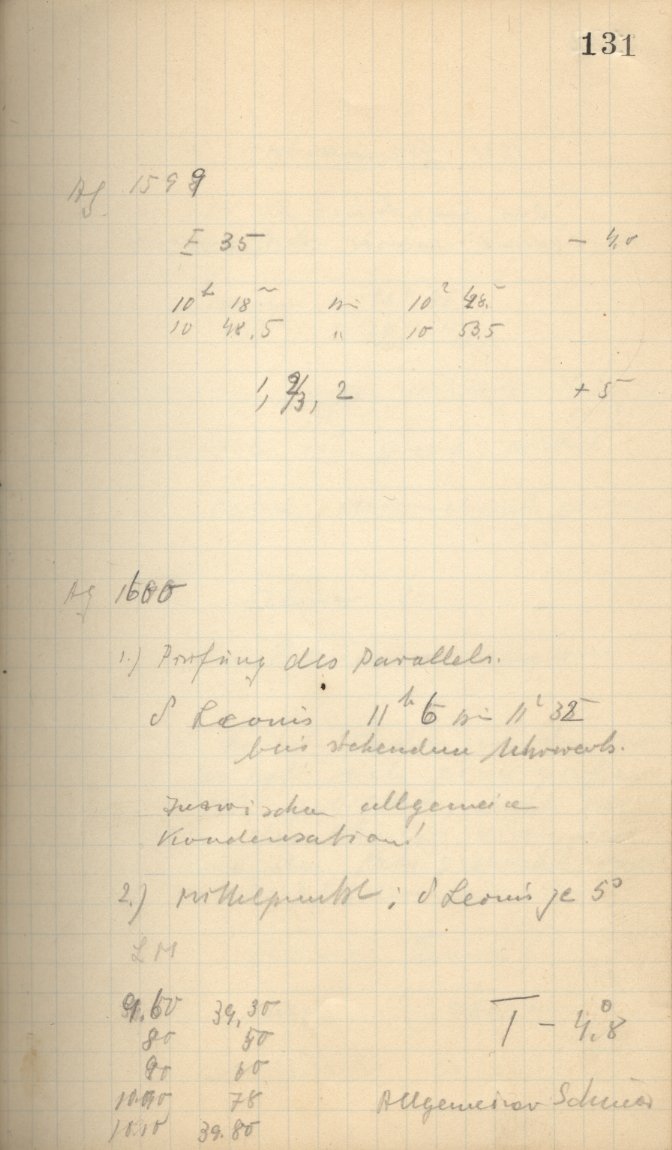 131
Ag 1599
E 35 - 4,0
10h 18m bis 10h 48
10 48.5 " 10 53.5
1, 2/3, 2 + 5
Ag 1600
1.) Prüfung des Parallels.
δ Leonis 11h 6 bis 11h 32
bei stehendem Uhrwerk.
Inzwischen allgemeine
Kondensation!
2.) Mittelpunkt; δ Leonis je 5s
L M
9.60 39,30 T - 4.°8
80 50
90 60
10.00 78 Allgemeiner
10.10 39.80